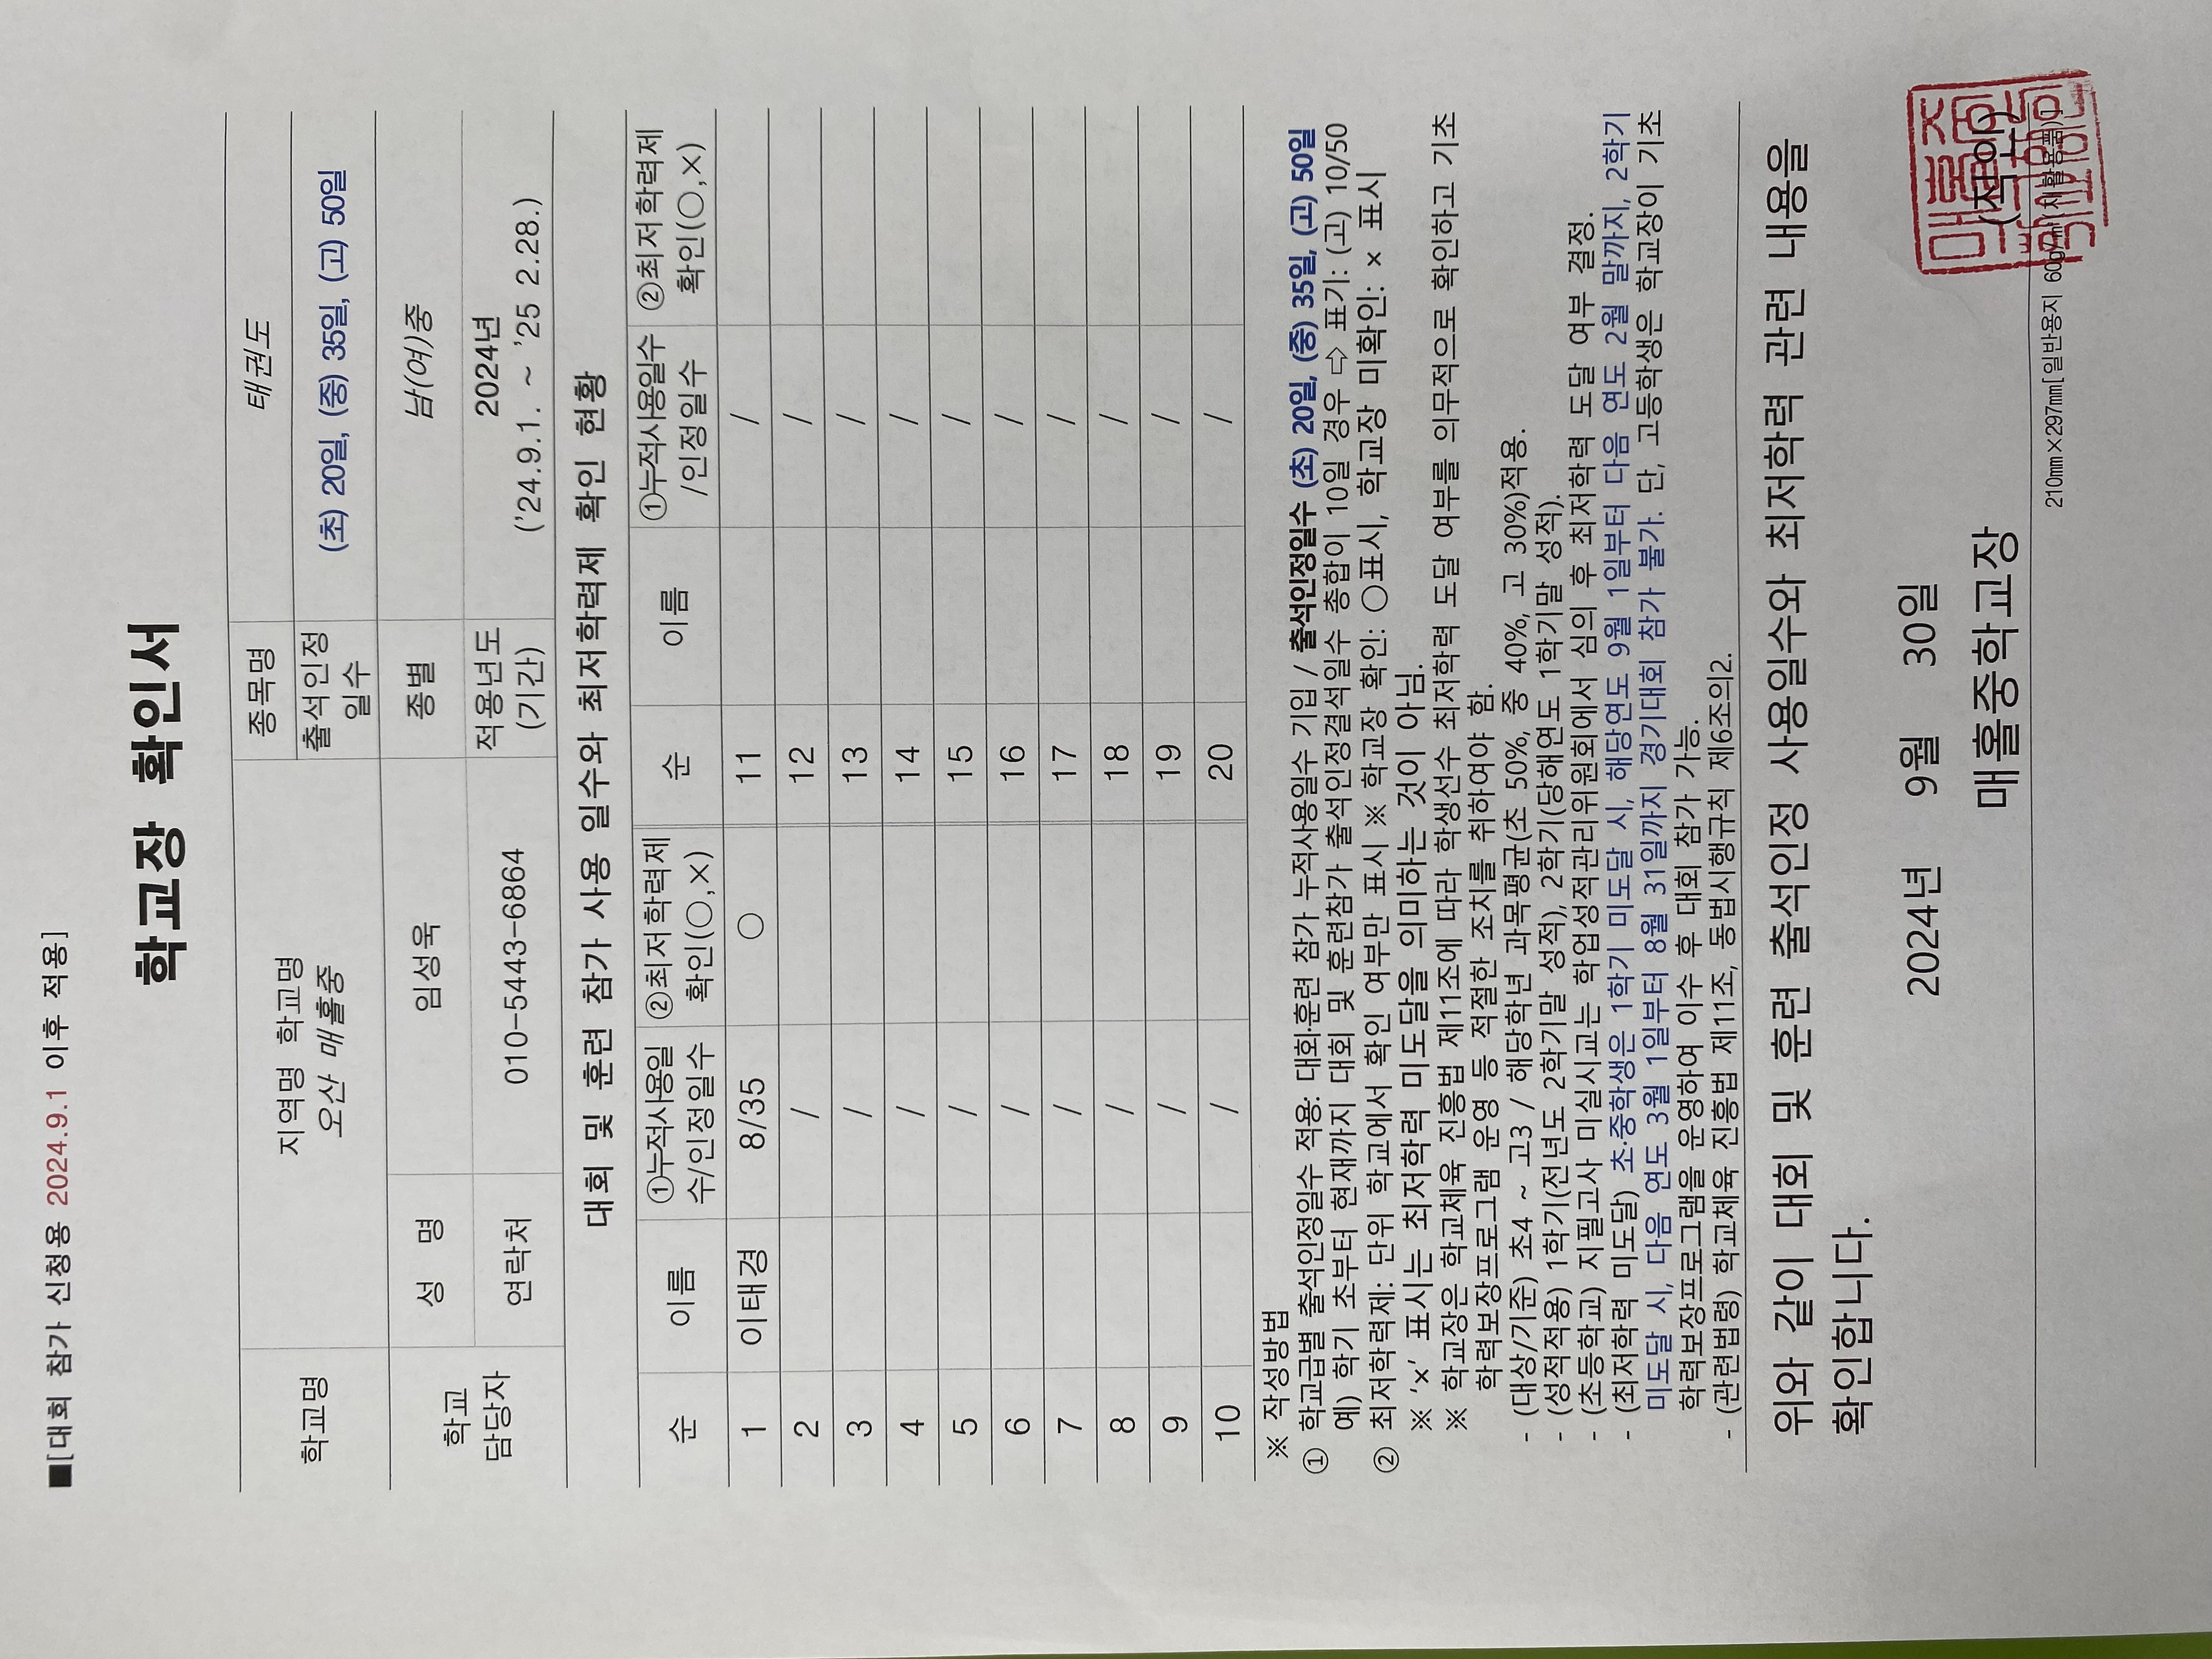 ■[대회 참가 신청용 2024.9.1 이후 적용]
학교장 확인서
학교명
지역명 학교명
오산 매홀중
종목명
태권도
출석인정
일수
(초) 20일, (중) 35일, (고) 50일
학교
담당자
성 명
임성욱
종별
남(여)중
연락처
010-5443-6864
적용년도
(기간)
2024년
('24.9.1. ~ '25 2.28.)
대회 및 훈련 참가 사용 일수와 최저학력제 확인 현황
순 이름 ①누적사용일 수/인정일수 ②최저학력제 확인(○,×) 순 이름 ①누적사용일수 /인정일수 ②최저학력제 확인(○,×)
1 이태경 8/35 ○ 11 /
2 / 12 /
3 / 13 /
4 / 14 /
5 / 15 /
6 / 16 /
7 / 17 /
8 / 18 /
9 / 19 /
10 / 20 /
※ 작성방법
① 학교급별 출석인정일수 적용: 대회·훈련 참가 누적사용일수 기입 / 출석인정일수 (초) 20일, (중) 35일, (고) 50일
예) 학기 초부터 현재까지 대회 및 훈련참가 출석인정결석일수 총합이 10일 경우 ⇨ 표기: (고) 10/50
② 최저학력제: 단위 학교에서 확인 여부만 표시 ※ 학교장 확인: ○표시, 학교장 미확인: × 표시
※ '×' 표시는 최저학력 미도달을 의미하는 것이 아님.
※ 학교장은 학교체육 진흥법 제11조에 따라 학생선수 최저학력 도달 여부를 의무적으로 확인하고 기초
학력보장프로그램 운영 등 적절한 조치를 취하여야 함.
- (대상/기준) 초4 ~ 고3 / 해당학년 과목평균(초 50%, 중 40%, 고 30%)적용.
- (성적적용) 1학기(전년도 2학기말 성적), 2학기(당해연도 1학기말 성적).
- (초등학교) 지필고사 미실시교는 학업성적관리위원회에서 심의 후 최저학력 도달 여부 결정.
- (최저학력 미도달) 초·중학생은 1학기 미도달 시, 해당연도 9월 1일부터 다음 연도 2월 말까지, 2학기
미도달 시, 다음 연도 3월 1일부터 8월 31일까지 경기대회 참가 불가. 단, 고등학생은 학교장이 기초
학력보장프로그램을 운영하여 이수 후 대회 참가 가능.
- (관련법령) 학교체육 진흥법 제11조, 동법시행규칙 제6조의2.
위와 같이 대회 및 훈련 출석인정 사용일수와 최저학력 관련 내용을
확인합니다.
2024년 9월 30일
매홀중학교장 (직인)
210㎜×297㎜[일반용지 60g/㎡(재활용품)]